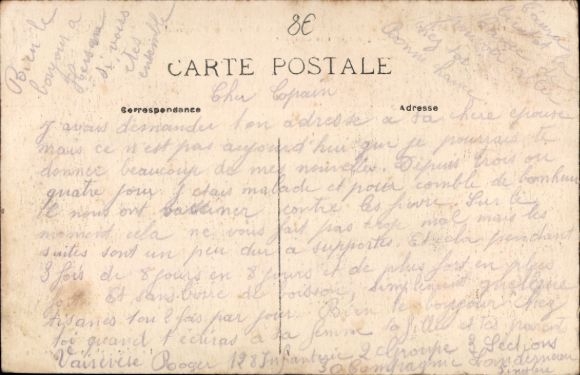 8E
Bien le
bonjour à
si vous
êtes
ensemble
Bonne chance
CARTE POSTALE
Correspondance
Adresse
Cher Copain
J avais demander ton adresse a ta chere epouse
mais ce n'est pas aujourd'hui que je pourrais te
donner beaucoup de mes nouvelles. Depuis trois ou
quatre jour J etais malade et pour comble de bonheur
il nous ont vacciner contre les fievre. Sur le
moment cela ne vous fait pas trop mal mais les
suites sont un peu dur a supportes. Et cela pendant
3 fois de 8 jours en 8 jours et de plus fort en plus
fort. Et sans boire de boisson, simplement quelque
tisanes 1 ou 2 fois par jour. Bien le bonjour chez
toi quand t'ecriras a ta femme ta fille et tes parent
Roger 128 Infanterie 2e Groupe 3 Sections
Compagnie Landerneau
Finistere